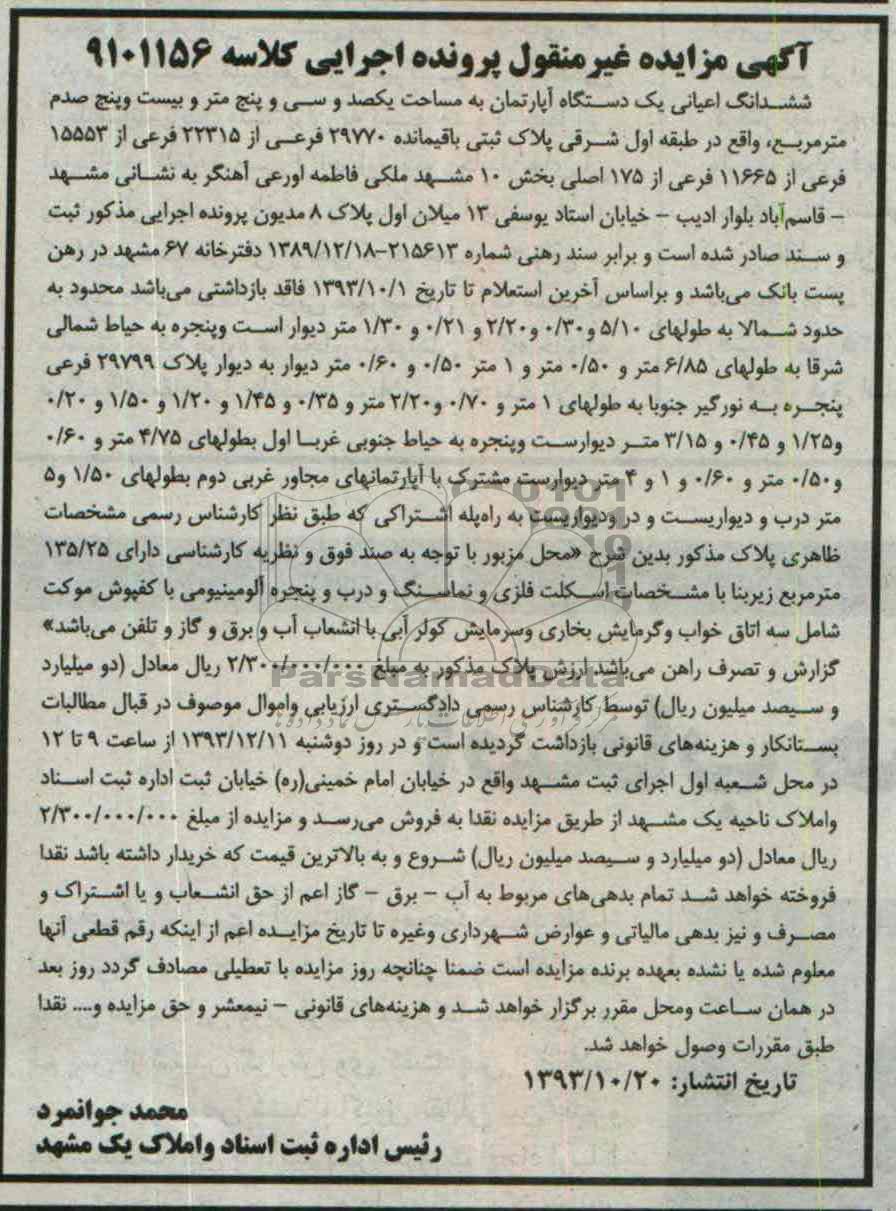 آگهی مزایده غیرمنقول پرونده اجرایی کلاسه ۹۱۰۱۱۵۶
ششدانگ اعیانی یک دستگاه آپارتمان به مساحت یکصد و سی و پنج متر و بیست وپنج صدم
مترمربع، واقع در طبقه اول شرقی پلاک ثبتی باقیمانده ۲۹۷۷۰ فرعی از ۲۲۳۱۵ فرعی از ۱۵۵۵۳
فرعی از ۱۱۶۶۵ فرعی از ۱۷۵ اصلی بخش ۱۰ مشهد ملکی فاطمه اورعی آهنگر به نشانی مشهد
- قاسم‌آباد بلوار ادیب - خیابان استاد یوسفی ۱۳ میلان اول پلاک ۸ مدیون پرونده اجرایی مذکور ثبت
و سند صادر شده است و برابر سند رهنی شماره ۲۱۵۶۱۳-۱۳۸۹/۱۲/۱۸ دفترخانه ۶۷ مشهد در رهن
پست بانک می‌باشد و براساس آخرین استعلام تا تاریخ ۱۳۹۳/۱۰/۱ فاقد بازداشتی می‌باشد محدود به
حدود شمالا به طولهای ۵/۱۰ و۰/۳۰ و۲/۲۰ و ۰/۲۱ و ۱/۳۰ متر دیوار است وپنجره به حیاط شمالی
شرقا به طولهای ۶/۸۵ متر و ۰/۵۰ متر و ۱ متر ۰/۵۰ و ۰/۶۰ متر دیوار به دیوار پلاک ۲۹۷۹۹ فرعی
پنجره به نورگیر جنوبا به طولهای ۱ متر و ۰/۷۰ و۲/۲۰ متر و ۰/۳۵ و ۱/۴۵ و ۱/۲۰ و ۱/۵۰ و ۰/۲۰
و۱/۲۵ و ۰/۴۵ و ۳/۱۵ متر دیوارست وپنجره به حیاط جنوبی غربا اول بطولهای ۴/۷۵ متر و ۰/۶۰
و۰/۵۰ متر و ۰/۶۰ و ۱ و ۴ متر دیوارست مشترک با آپارتمانهای مجاور غربی دوم بطولهای ۱/۵۰ و۵
متر درب و دیواریست و در ودیواریست به راه‌پله اشتراکی که طبق نظر کارشناس رسمی مشخصات
ظاهری پلاک مذکور بدین شرح «محل مزبور با توجه به صند فوق و نظریه کارشناسی دارای ۱۳۵/۲۵
مترمربع زیربنا با مشخصات اسکلت فلزی و نماسنگ و درب و پنجره آلومینیومی با کفپوش موکت
شامل سه اتاق خواب وگرمایش بخاری وسرمایش کولر آبی با انشعاب آب و برق و گاز و تلفن می‌باشد»
گزارش و تصرف راهن می‌باشد ارزش پلاک مذکور به مبلغ ۲/۳۰۰/۰۰۰/۰۰۰ ریال معادل (دو میلیارد
و سیصد میلیون ریال) توسط کارشناس رسمی دادگستری ارزیابی واموال موصوف در قبال مطالبات
بستانکار و هزینه‌های قانونی بازداشت گردیده است و در روز دوشنبه ۱۳۹۳/۱۲/۱۱ از ساعت ۹ تا ۱۲
در محل شعبه اول اجرای ثبت مشهد واقع در خیابان امام خمینی(ره) خیابان ثبت اداره ثبت اسناد
واملاک ناحیه یک مشهد از طریق مزایده نقدا به فروش می‌رسد و مزایده از مبلغ ۲/۳۰۰/۰۰۰/۰۰۰
ریال معادل (دو میلیارد و سیصد میلیون ریال) شروع و به بالاترین قیمت که خریدار داشته باشد نقدا
فروخته خواهد شد تمام بدهی‌های مربوط به آب - برق - گاز اعم از حق انشعاب و یا اشتراک و
مصرف و نیز بدهی مالیاتی و عوارض شهرداری وغیره تا تاریخ مزایده اعم از اینکه رقم قطعی آنها
معلوم شده یا نشده بعهده برنده مزایده است ضمنا چنانچه روز مزایده با تعطیلی مصادف گردد روز بعد
در همان ساعت ومحل مقرر برگزار خواهد شد و هزینه‌های قانونی - نیمعشر و حق مزایده و.... نقدا
طبق مقررات وصول خواهد شد.
تاریخ انتشار: ۱۳۹۳/۱۰/۲۰
محمد جوانمرد
رئیس اداره ثبت اسناد واملاک یک مشهد
ParsNamadData